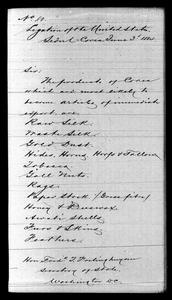 No. 10.
Legation of the United States,
Seoul Corea June 3rd 1884
Sir:
The products of Corea
which are most likely to
become articles of immediate
export are
Raw Silk.
Waste Silk.
Gold Dust.
Hides, Horns, Hoofs & Tallow
Tobacco.
Gall Nuts.
Rags.
Paper Stock
Honey & Beeswax.
Awabi Shells.
Furs & Skins.
Feathers.
Hon. Fredk. T. Frelinghuysen
Secretary of State.
Washington D.C.